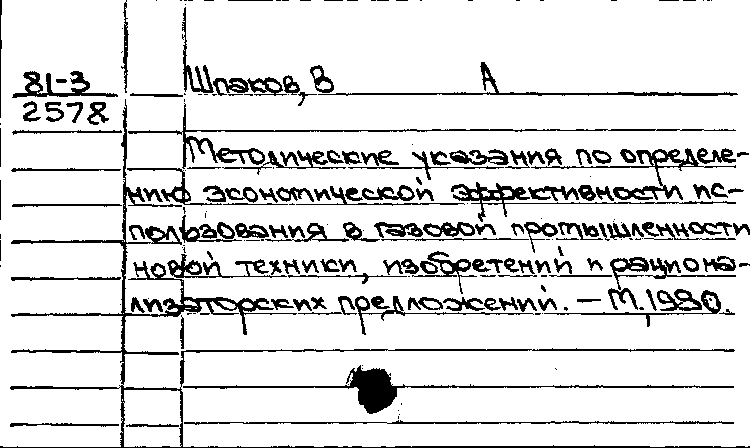 81-3 Шпаков, В А
2578
Методические указания по определе-
нию экономической эффективности ис-
пользования в газовой промышленности
новой техники, изобретений и рациона-
лизаторских предложений. – М., 1980.